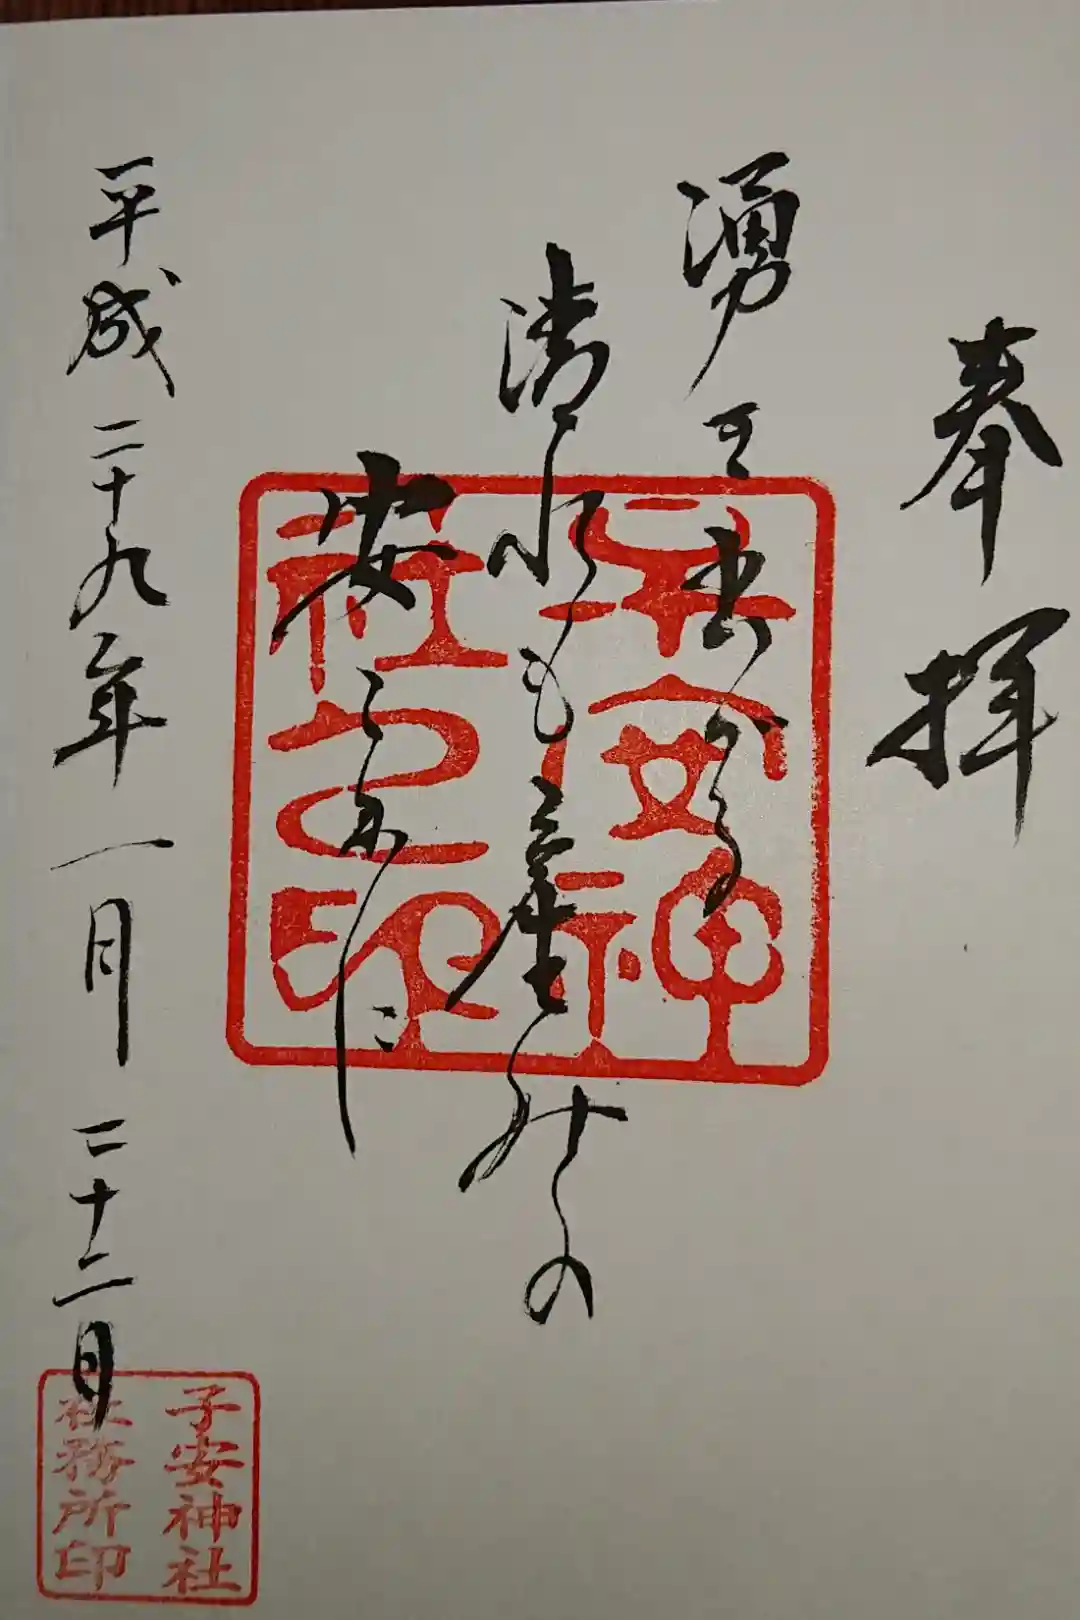 奉拝
湧て出る
清水も産の
安
平成二十九年一月二十二日
子安神
社之印
子安神社
社務所印